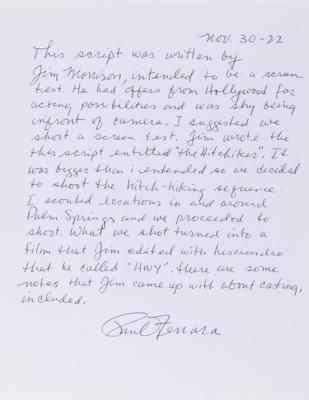 Nov. 30-22
This script was written by
Jim Morrison, intended to be a screen
test. He had offers from Hollywood for
acting possibilities and was shy being
infront of camera. I suggested we
shoot a screen test. Jim wrote the
this script entitled "the Hitchiker". It
was bigger than i entended so we decided
to shoot the hitch-hiking sequence.
I scouted locations in and around
Palm Springs and we proceeded to
shoot. What we shot turned into a
film that Jim edited with
that he called "HWY". there are some
notes that Jim came up with about casting,
included.
Paul Ferrara